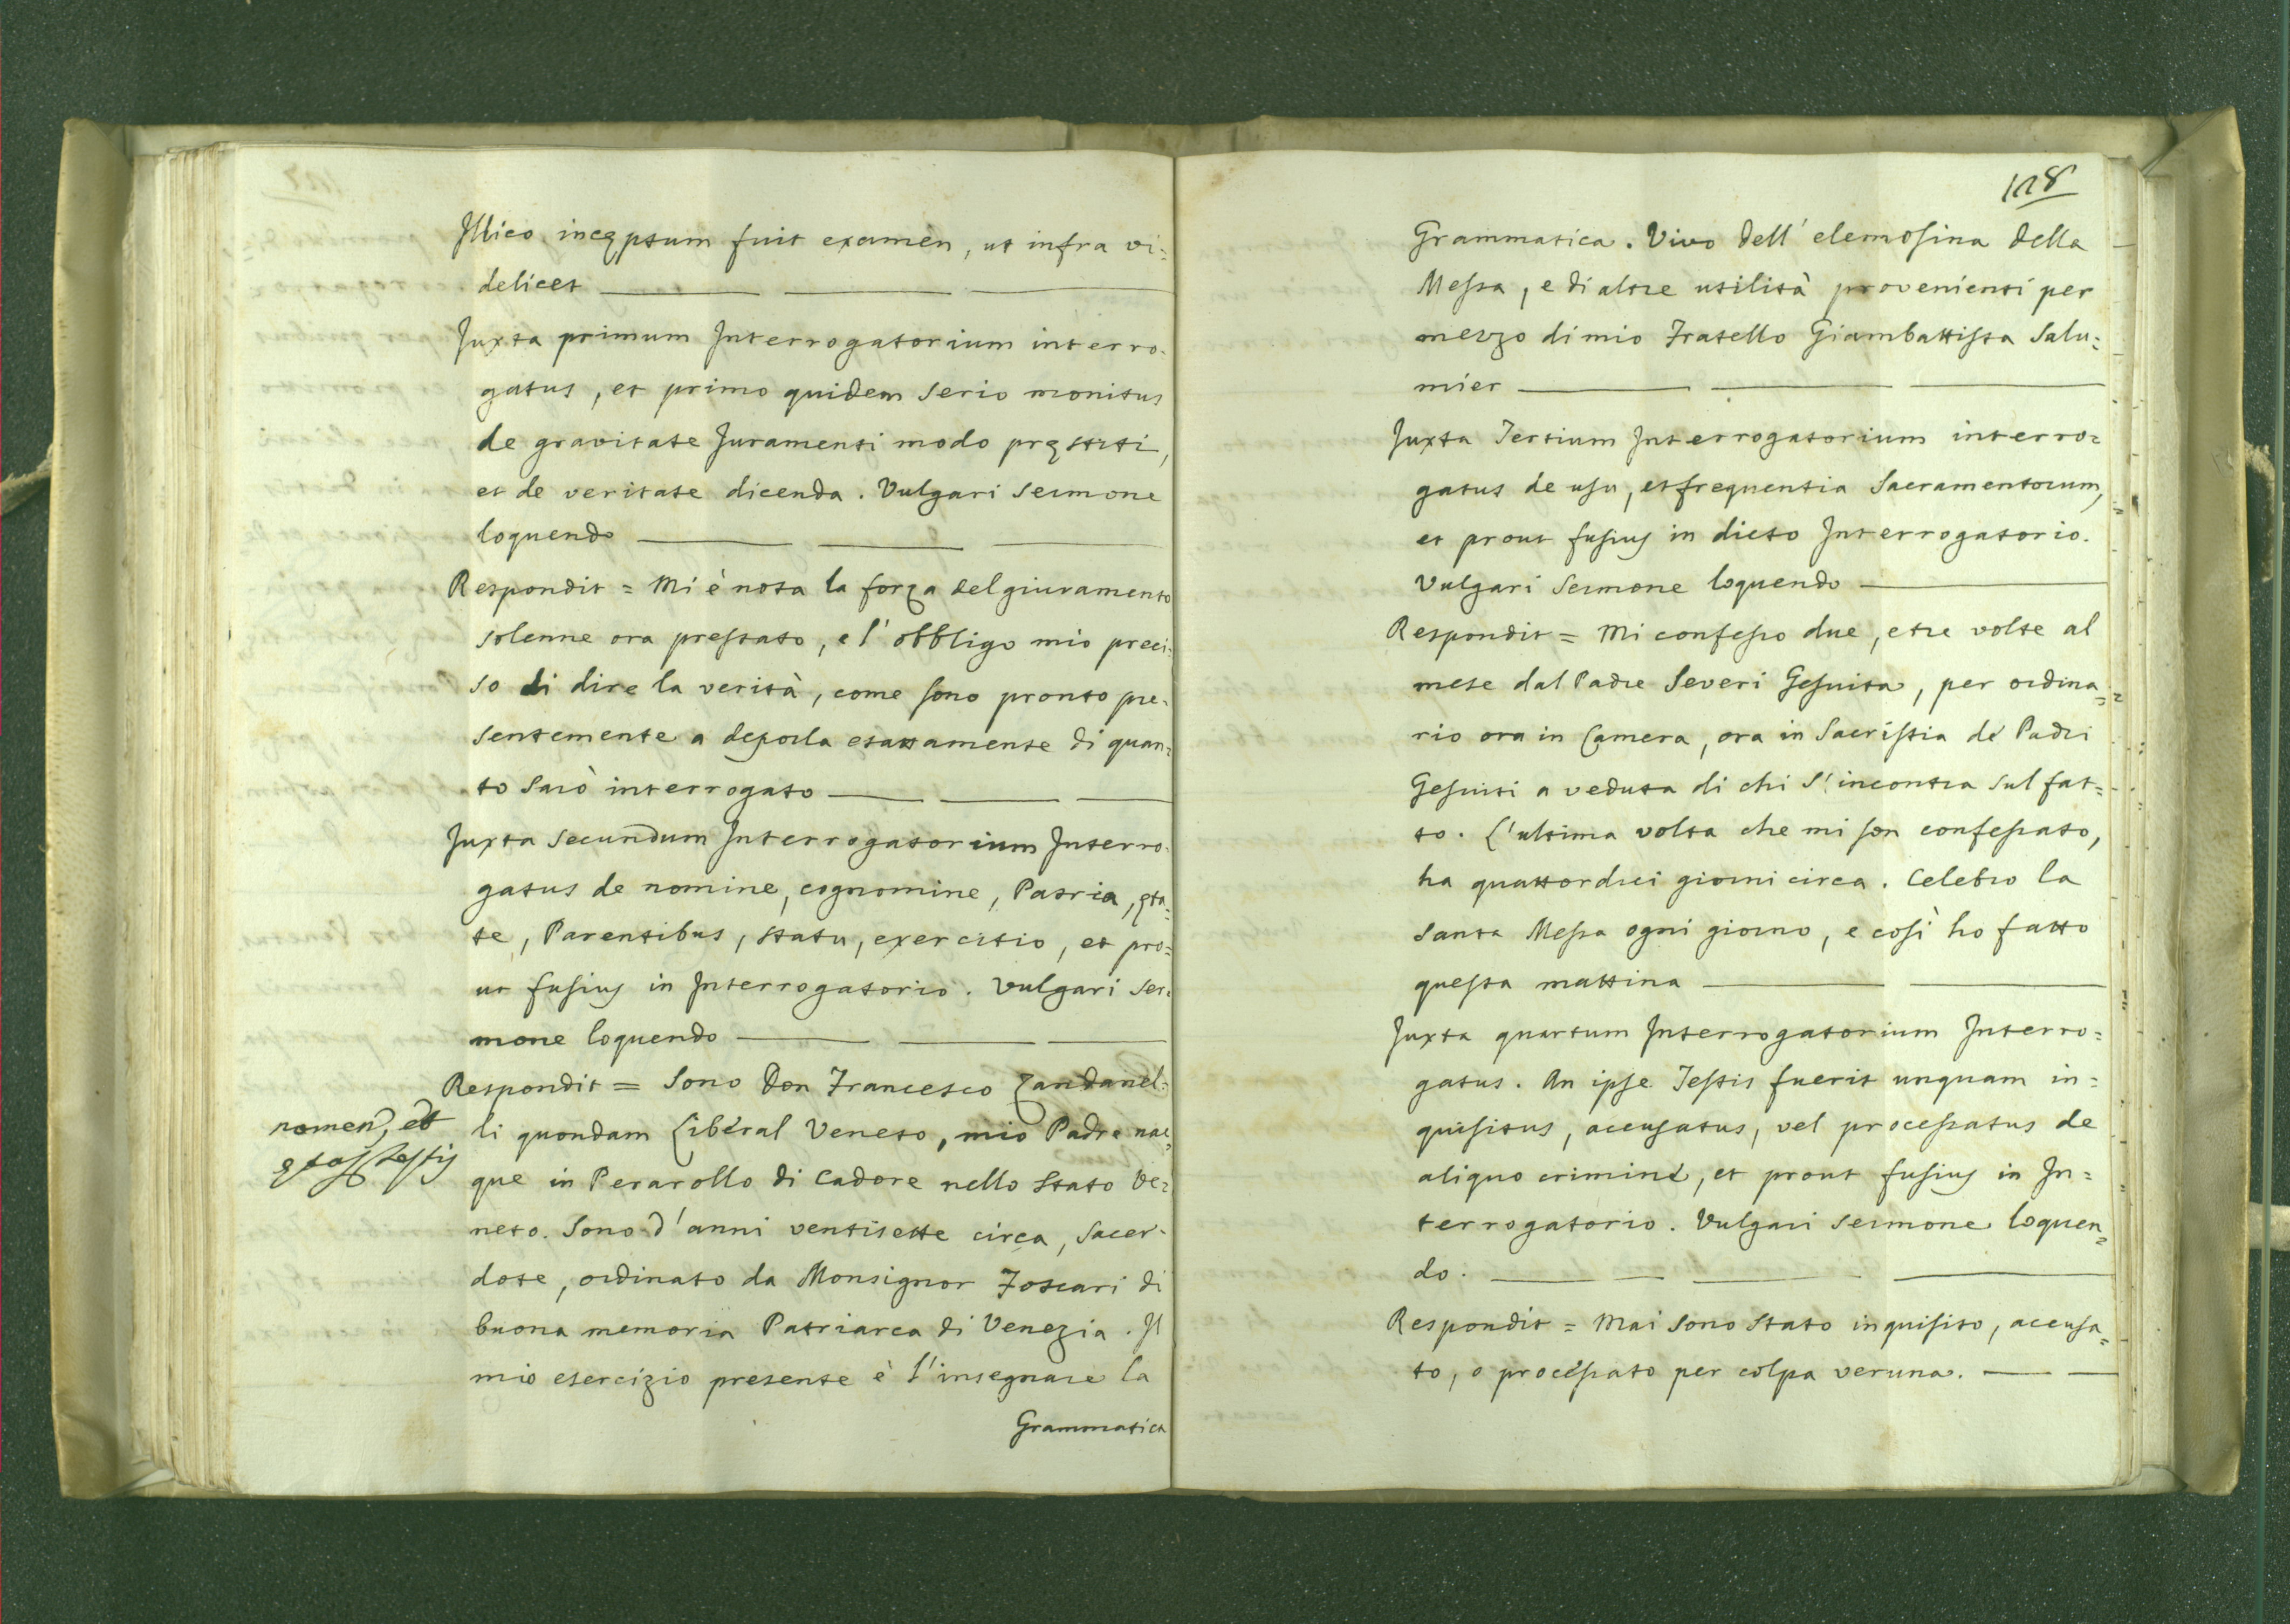 Illico incęptum fuit examen, ut infra vi=
delicet
Juxta primum Interrogatorium interro=
gatus, et primo quidem serio monitus
de gravitate Juramenti modo pręstiti,
et de veritate dicenda. Vulgari sermone
loquendo
Respondit = Mi è nota la forza del giuramento
solenne ora prestato, e l'obbligo mio preci=
so di dire la verità, come sono pronto pre=
sentemente a deporla esattamente di quan=
to sarò interrogato
Juxta secundum Interrogatorium Interro=
gatus de nomine, cognomine, Patria, ęta=
te, Parentibus, statu, exercitio, et pro=
ut fusius in Interrogatorio. Vulgari ser=
mone loquendo
Respondit = Sono Don Francesco Zandanel=
nomen, et
ętas testis
li quondam Liberal Veneto, mio Padre nac=
que in Perarollo di Cadore nello Stato Ve=
neto. Sono d'anni ventisette circa, Sacer=
dote, ordinato da Monsignor Foscari di
buona memoria Patriarca di Venezia. Il
mio esercizio presente è l'insegnare la
Grammatica
128
Grammatica. Vivo dell'elemosina della
Messa, e di altre utilità provenienti per
mezzo di mio Fratello Giambattista Salu=
mier
Juxta Tertium Interrogatorium interro=
gatus de usu, et frequentia Sacramentorum,
et prout fusius in dicto Interrogatorio.
Vulgari sermone loquendo
Respondit = Mi confesso due, e tre volte al
mese dal Padre Severi Gesuita, per ordina=
rio ora in Camera, ora in Sacristia de' Padri
Gesuiti a veduta di chi s'incontra sul fat=
to. L'ultima volta che mi son confessato,
ha quattordici giorni circa. Celebro la
santa Messa ogni giorno, e così ho fatto
questa mattina
Juxta quartum Interrogatorium Interro=
gatus. An ipse Testis fuerit unquam in=
quisitus, accusatus, vel processatus de
aliquo crimine, et prout fusius in In=
terrogatorio. Vulgari sermone loquen=
do.
Respondit = Mai sono stato inquisito, accusa=
to, o processato per colpa veruna.